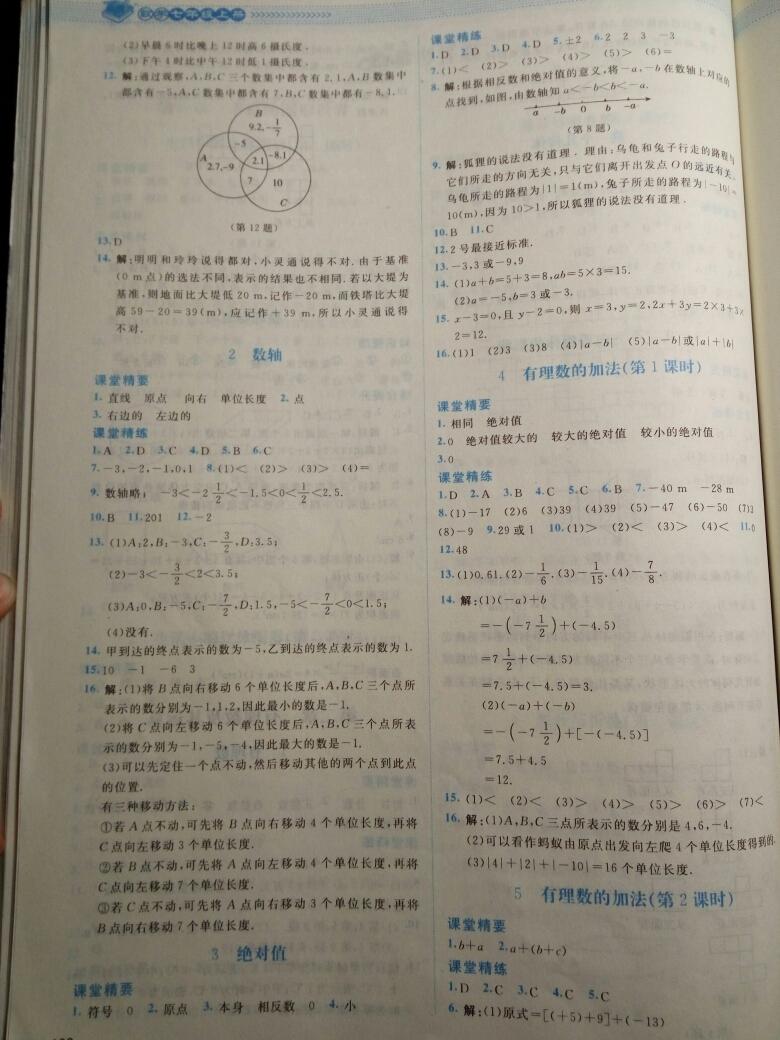 数学七年级上册
(2)早晨6时比晚上12时高6摄氏度.
(3)下午4时比中午12时低1摄氏度.
12. 解:通过观察,A,B,C三个数集中都含有2,1,A,B数集中
都含有-5,A,C数集中都含有7,B,C数集中都有-8,1.
B
9.2,-1/7
-5
A
2.7,-9
2.1
-8.1
7
10
C
(第12题)
13. D
14. 解:明明和玲玲说得都对,小灵通说得不对.由于基准
(0 m点)的选法不同,表示的结果也不相同.若以大堤为
基准,则地面比大堤低20 m,记作-20 m,而铁塔比大堤
高59-20=39(m),应记作+39 m,所以小灵通说得
不对.
2 数轴
课堂精要
1. 直线 原点 向右 单位长度 2. 点
3. 右边的 左边的
课堂精练
1. A 2. D 3. C 4. D 5. B 6. C
7. -3,-2,-1,0,1 8. (1)< (2)> (3)> (4)=
9. 数轴略; -3<-2 1/2<-1.5<0<1/2<2.5.
10. B 11. 201 12. -2
13. (1)A:2,B:-3,C:-3/2,D:3.5;
(2)-3<-3/2<2<3.5;
(3)A:0,B:-5,C:-7/2,D:1.5,-5<-7/2<0<1.5;
(4)没有.
14. 甲到达的终点表示的数为-5,乙到达的终点表示的数为1.
15. 10 -1 -6 3
16. 解:(1)将B点向右移动6个单位长度后,A,B,C三个点所
表示的数分别为-1,1,2,因此最小的数是-1.
(2)将C点向左移动6个单位长度后,A,B,C三个点所表
示的数分别为-1,-5,-4,因此最大的数是-1.
(3)可以先定住一个点不动,然后移动其他的两个点到此点
的位置.
有三种移动方法:
①若A点不动,可先将B点向右移动4个单位长度,再将
C点向左移动3个单位长度.
②若B点不动,可先将A点向左移动4个单位长度,再将
C点向左移动7个单位长度.
③若C点不动,可先将A点向右移动3个单位长度,再将
B点向右移动7个单位长度.
3 绝对值
课堂精要
1. 符号 0 2. 原点 3. 本身 相反数 0 4. 小
课堂精练
1. D 2. D 3. D 4. D 5. ±2 6. 2 2 3 -3
7. (1)< (2)> (3)> (4)> (5)> (6)=
8. 解:根据相反数和绝对值的意义,将-a,-b在数轴上对应的
点找到,如图,由数轴知a<-b<b<-a.
a -b 0 b -a
(第8题)
9. 解:狐狸的说法没有道理.理由:乌龟和兔子行走的路程与
它们所走的方向无关,只与它们离开出发点O的远近有关.
乌龟所走的路程为|1|=1(m),兔子所走的路程为|-10|=
10(m),因为10>1,所以狐狸的说法没有道理.
10. B 11. C
12. 2号最接近标准.
13. -3,3或-9,9
14. (1)a+b=5+3=8,ab=5×3=15.
(2)a=-5,b=3或-3.
15. x-3=0,且y-2=0,则x=3,y=2,2x+3y=2×3+3×
2=12.
16. (1)1 (2)3 (3)8 (4)|a-b| (5)|a-b|或|a|+|b|
4 有理数的加法(第1课时)
课堂精要
1. 相同 绝对值
2. 0 绝对值较大的 较大的绝对值 较小的绝对值
3. 0
课堂精练
1. D 2. A 3. B 4. C 5. C 6. B 7. -40 m -28 m
8. (1)-17 (2)6 (3)39 (4)39 (5)-47 (6)-50 (7)3
(8)-9 9. 29或1 10. (1)> (2)< (3)> (4)< 11. 0
12. 48
13. (1)0.61. (2)-1/6. (3)-1/15. (4)-7/8.
14. 解:(1)(-a)+b
=-(-7 1/2)+(-4.5)
=7 1/2+(-4.5)
=7.5+(-4.5)=3.
(2)(-a)+(-b)
=-(-7 1/2)+[-(-4.5)]
=7.5+4.5
=12.
15. (1)< (2)< (3)> (4)> (5)> (6)> (7)<
16. 解:(1)A,B,C三点所表示的数分别是4,6,-4.
(2)可以看作蚂蚁由原点出发向左爬4个单位长度得到的.
(3)|4|+|2|+|-10|=16个单位长度.
5 有理数的加法(第2课时)
课堂精要
1. b+a 2. a+(b+c)
课堂精练
1. D 2. C 3. C 4. C 5. C
6. 解:(1)原式=[(+5)+9]+(-13)